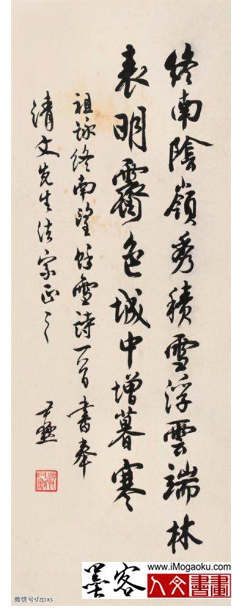 終南陰嶺秀積雪浮雲端林
表明霽色城中增暮寒
祖詠終南望餘雪詩一首書奉
清文先生法家正之
尹默
微信号sfzpxs
墨客
www.iMogaoku.com
人文書畫